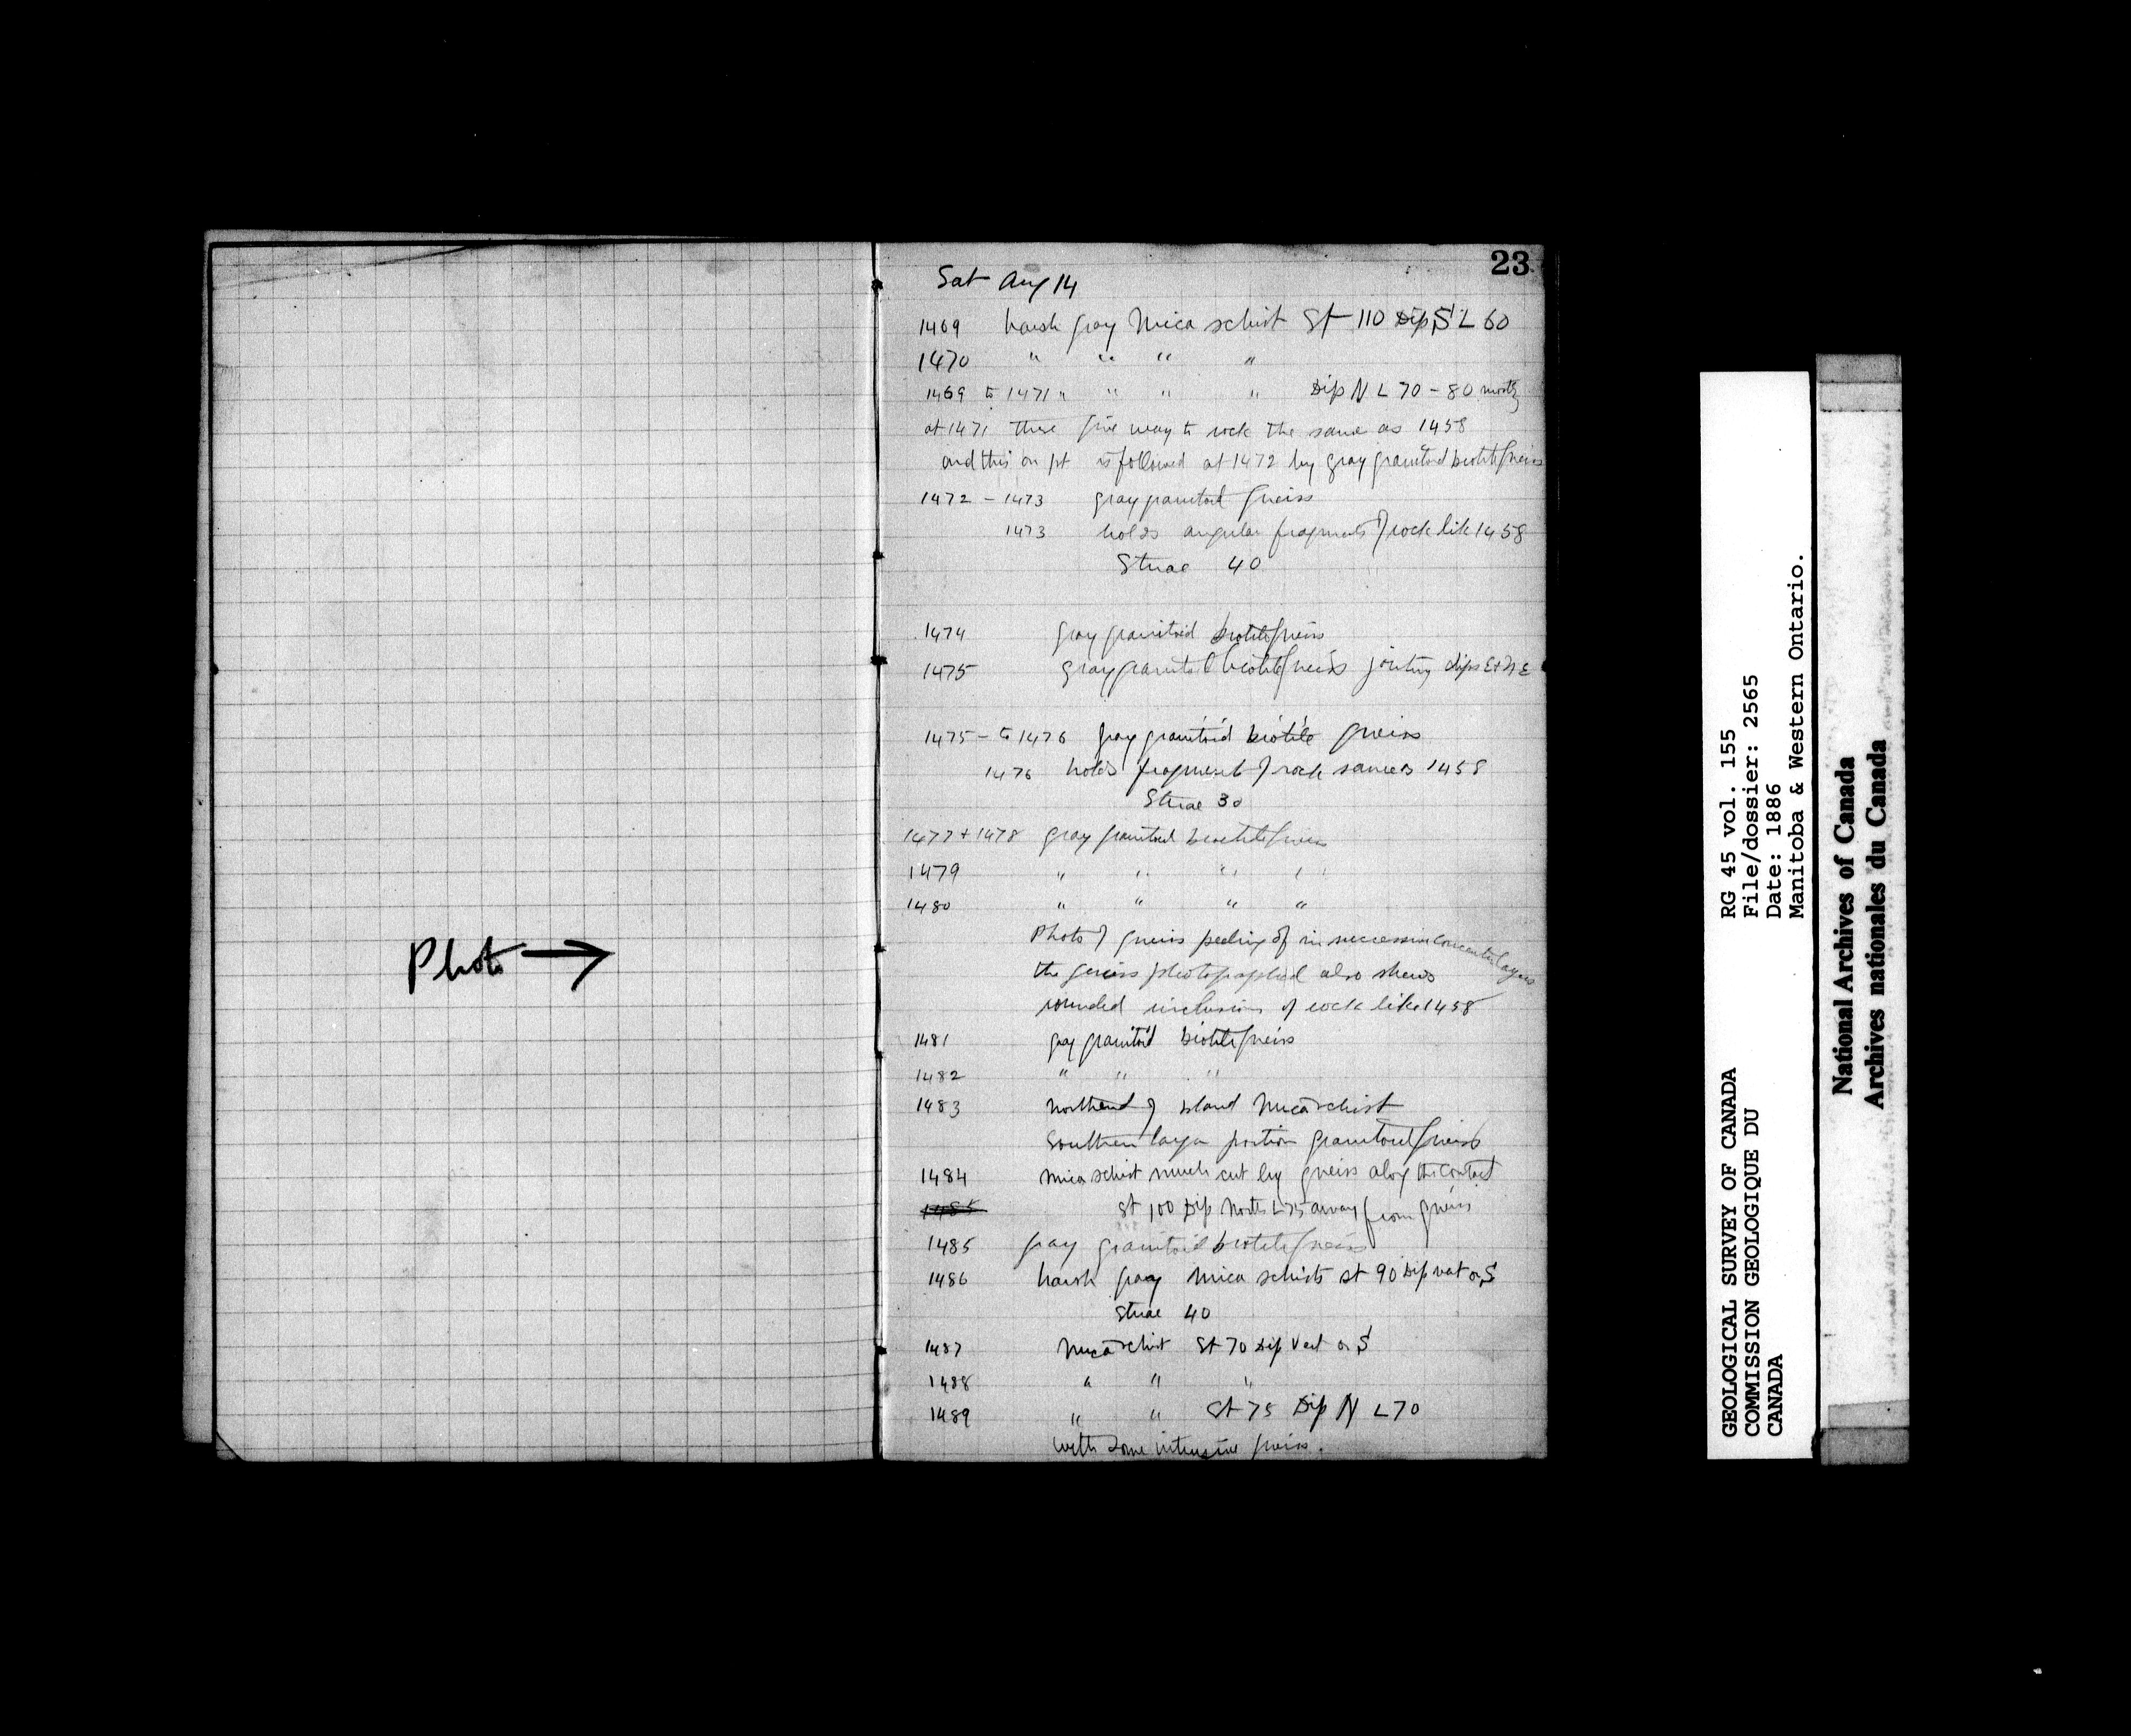 Photo →
23
Sat Aug 14
1469 harsh gray Mica schist St 110 Dip S L 60
1470 " " " "
1469 to 1471 " " " " Dip N L 70 - 80 mostly
at 1471 these give way to rock the same as 1458
and this on pt is followed at 1472 by gray granitoid biotite gneiss
1472 - 1473 gray granitoid gneiss
1473 holds angular fragments of rock like 1458
Striae 40
1474 gray granitoid biotite gneiss
1475 gray granitoid biotite gneiss jointing dips E + N E
1475 - to 1476 gray granitoid biotite gneiss
1476 holds fragments of rock same as 1458
Striae 30
1477 + 1478 gray granitoid biotite gneiss
1479 " " " "
1480 " " " "
Photo of gneiss peeling off in successive concentric layers
the gneiss photographed also shews
rounded inclusions of rock like 1458
1481 gray granitoid biotite gneiss
1482 " " "
1483 North end of island Mica schist
Southern larger portion granitoid gneiss
1484 Mica schist much cut by gneiss along the contact
1485 St 100 Dip North L 75 away from gneiss
1485 gray granitoid biotite gneiss
1486 harsh gray Mica schists st 90 Dip vert or S
Striae 40
1487 Mica schist St 70 Dip Vert or S
1488 " " "
1489 " " St 75 Dip N L 70
with some intrusive gneiss.
GEOLOGICAL SURVEY OF CANADA RG 45 vol. 155
COMMISSION GEOLOGIQUE DU File/dossier: 2565
CANADA Date: 1886
Manitoba & Western Ontario.
National Archives of Canada
Archives nationales du Canada